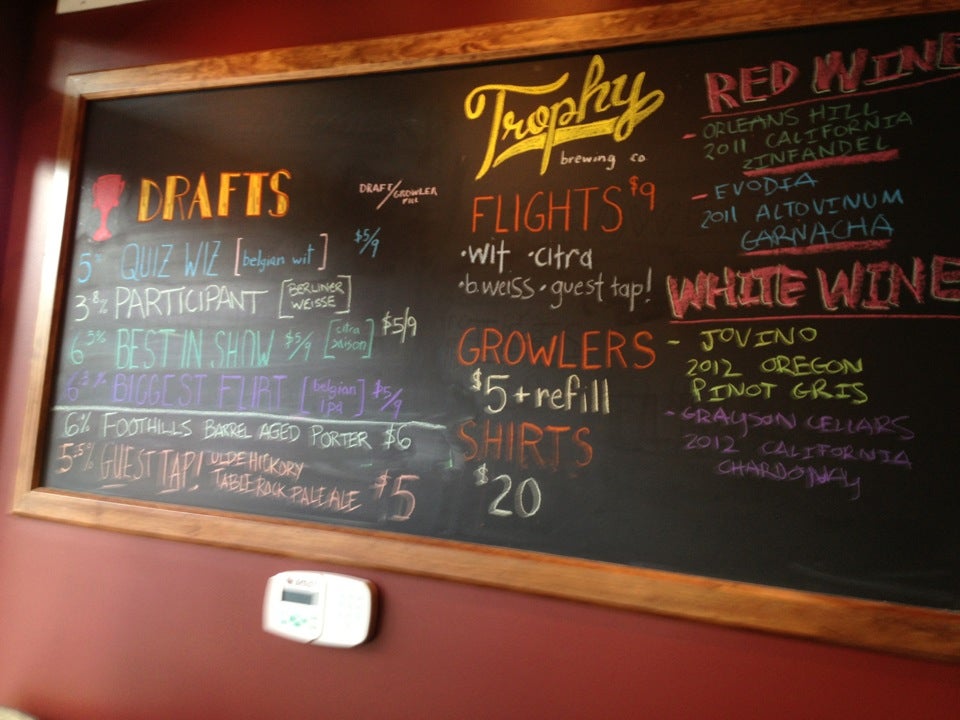 DRAFTS
DRAFT/GROWLER FILL
5% QUIZ WIZ [belgian wit] $5/9
3.8% PARTICIPANT [BERLINER WEISSE] $5/9
6.5% BEST IN SHOW $5/9 [citra saison]
BIGGEST FLIRT [belgian ipa] $5/9
6% FOOTHILLS BARREL AGED PORTER $6
5.5% GUEST TAP! OLDE HICKORY
TABLE ROCK PALE ALE $5
Trophy
brewing co.
FLIGHTS $9
·wit ·citra
·b.weiss ·guest tap!
GROWLERS
$5 + refill
SHIRTS
$20
RED WINE
- ORLEANS HILL
2011 CALIFORNIA
ZINFANDEL
- EVODIA
2011 ALTOVINUM
GARNACHA
WHITE WINE
- JOVINO
2012 OREGON
PINOT GRIS
- GRAYSON CELLARS
2012 CALIFORNIA
CHARDONAY